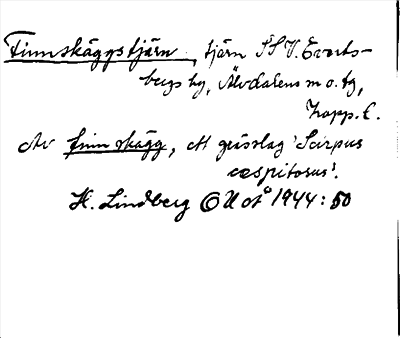 Finnskäggstjärn, tjärn SSV. Everts-
bergs by, Älvdalens m o. tg,
Kopp. l.
Av finnskägg, ett grässlag 'Scirpus
cæspitosus'.
H. Lindberg OUoÅ 1944: 50